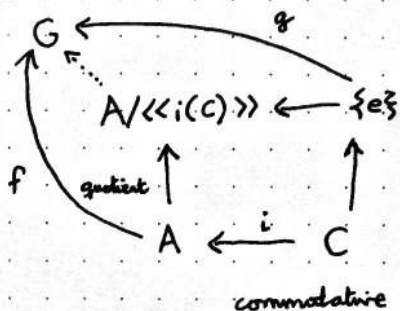 g
G
A/<<i(C)>> {e}
f
quotient
A i C
commutative